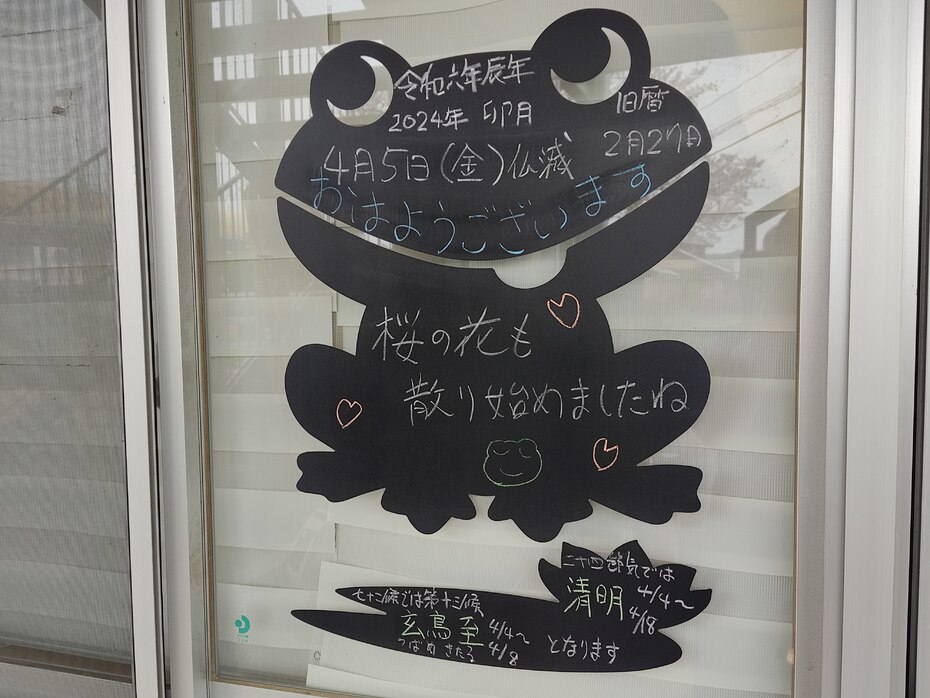 令和六年辰年
2024年 卯月
旧暦
2月27日
4月5日(金)仏滅
おはようございます
桜の花も
散り始めましたね
二十四節気では
清明 4/4~
4/18
七十二候では第十三候
玄鳥至 4/4~
つばめきたる 4/8
となります